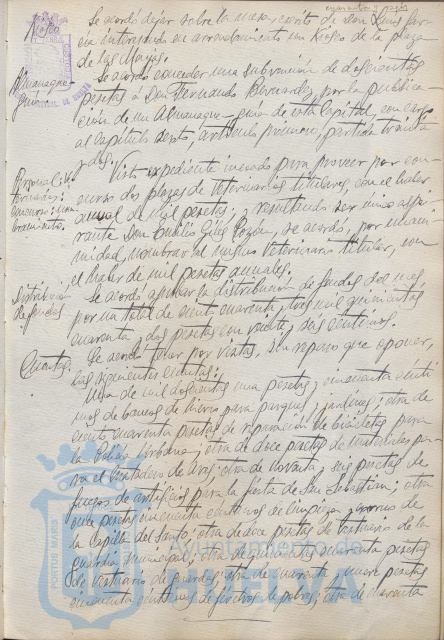 cuarenta y
Kiosco
Se acordó dejar sobre la mesa, escrito de Don Luis Gar-
cía interesando en arrendamiento un kiosco de la plaza
de las Monjas.
Almanaque-
guía
Se acordó conceder una subvención de doscientas
pesetas á Don Fernando Bernáldez, por la publica-
ción de un Almanaque-guía de esta Capital, con cargo
al Capítulo sexto, artículo primero, partida treinta
y dos.
Personal: Ve-
terinarios:
concurso: nom-
bramiento.
Visto expediente incoado para proveer por con-
curso dos plazas de Veterinarios titulares, con el haber
anual de mil pesetas, y resultando ser único aspi-
rante Don Emilio, se acordó, por unani-
midad, nombrar al mismo Veterinario titular, con
el haber de mil pesetas anuales.
Distribución
de fondos
Se acordó aprobar la distribución de fondos del mes,
por un total de ciento cuarenta y tres mil quinientas
cuarenta y dos pesetas con veinte y seis céntimos.
Cuentas.
Se acordó tener por vistas, sin reparo que oponer,
las siguientes cuentas:
Una de mil doscientas una pesetas y cincuenta cénti-
mos de bancos de hierro para parques y jardines; otra de
ciento cuarenta pesetas de reparación de bicicletas para
la Policía Urbana; otra de doce pesetas de materiales pa-
ra el Matadero de Aves; otra de noventa y seis pesetas de
fuegos de artificios para la fiesta de San Sebastián; otra
once pesetas cincuenta céntimos de limpieza y adorno de
la Capilla del Santo; otra de doce pesetas de vestuario de la
Guardia Municipal; otra de quinientas cuarenta pesetas
de vestuario de guardas; otra de cuarenta y nueve pesetas
cincuenta céntimos de féretros de pobres; otra de cuarenta
PORTUS MARIS
Ayuntamiento de
HUELVA